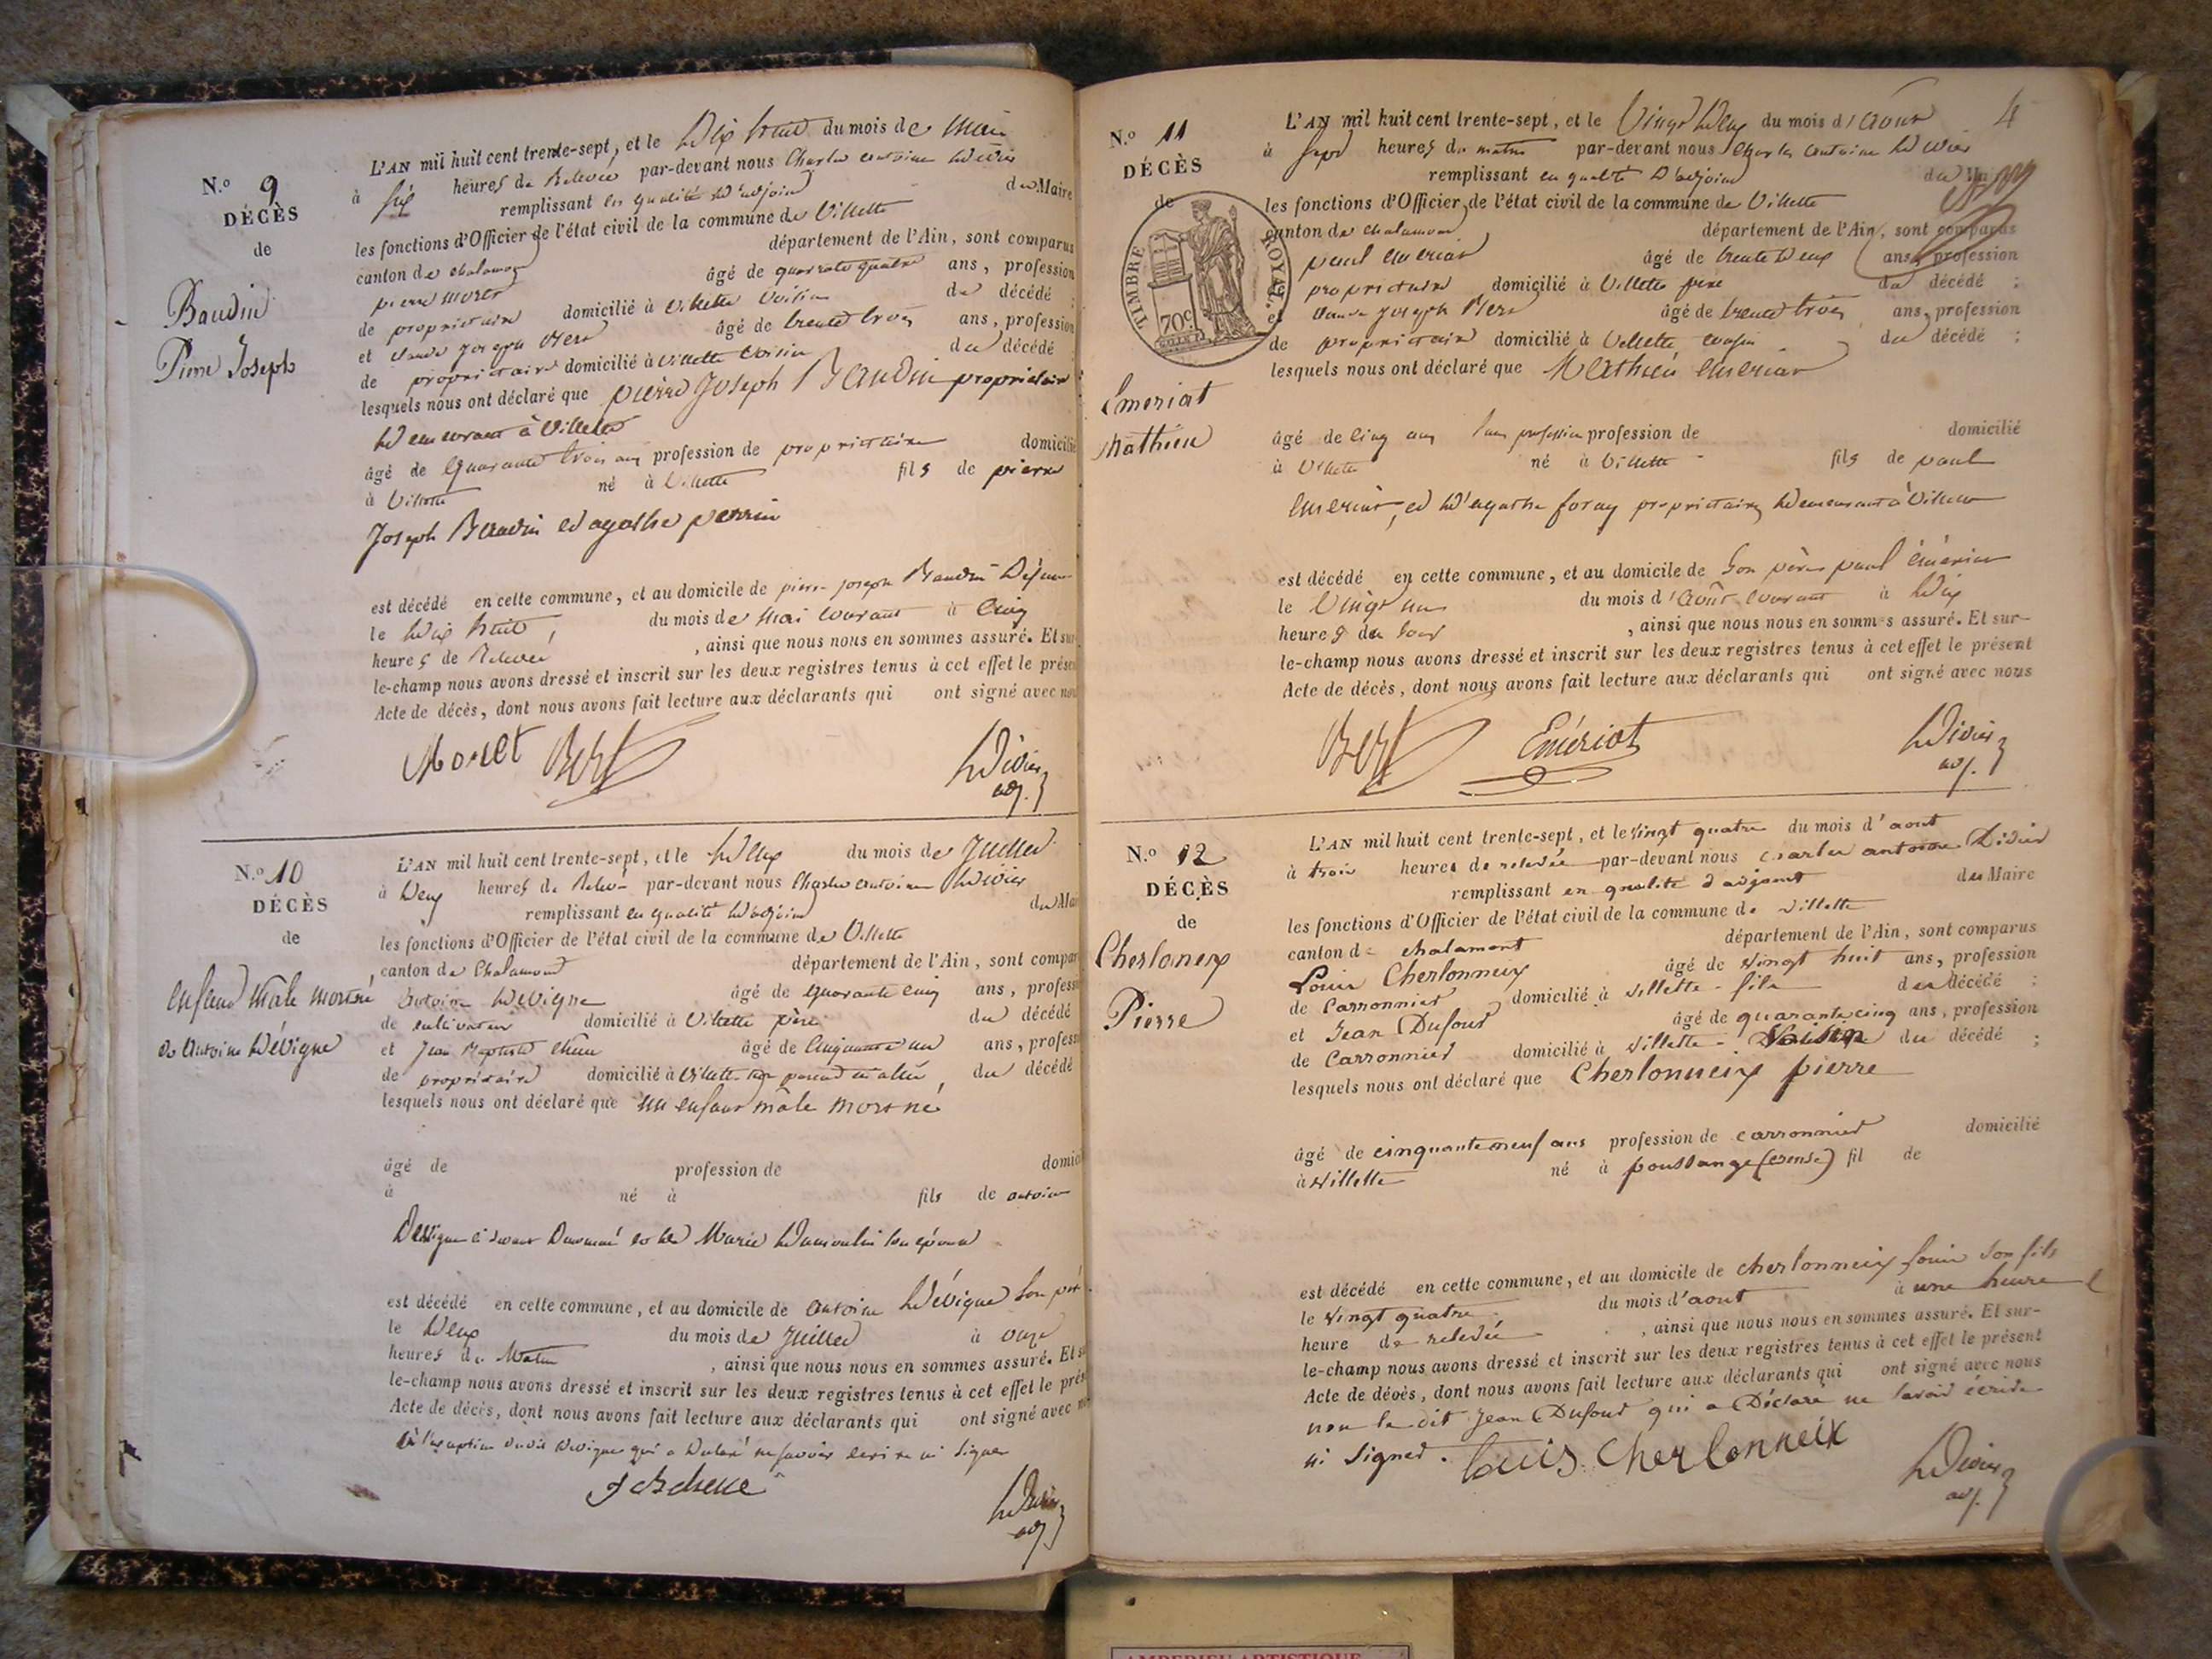 N.º 9
DÉCÈS
de
Baudin
Pierre Joseph
L'AN mil huit cent trente-sept, et le Dix huit du mois de Mai
à six heures de Relevée par-devant nous Charles antoine Didier
remplissant en qualité d'adjoint du Maire
les fonctions d'Officier de l'état civil de la commune de Villette
canton de chalamont département de l'Ain, sont comparus
pierre moret âgé de quarante quatre ans, profession
de propriétaire domicilié à Villette voisin du décédé ;
et claude joseph Bert âgé de trente trois ans, profession
de propriétaire domicilié à villette voisin du décédé ;
lesquels nous ont déclaré que pierre Joseph Baudin propriétaire
demeurant à Villette
âgé de quarante trois ans profession de propriétaire domicilié
à Villette né à Villette fils de pierre
Joseph Baudin et agathe perrin
est décédé en cette commune, et au domicile de pierre joseph Baudin Défunt
le dix huit, du mois de Mai courant à Cinq
heures de Relevée , ainsi que nous nous en sommes assuré. Et sur-
le-champ nous avons dressé et inscrit sur les deux registres tenus à cet effet le présent
Acte de décès, dont nous avons fait lecture aux déclarants qui ont signé avec nous
Moret Bert Didier
adj.
N.º 10
DÉCÈS
de
enfant mâle mort né
de Antoine Dévigne
L'AN mil huit cent trente-sept, et le deux du mois de Juillet
à deux heures de Relevé par-devant nous Charles antoine Didier
remplissant en qualité d'adjoint du Mai
les fonctions d'Officier de l'état civil de la commune de Villette
canton de Chalamont département de l'Ain, sont compar
Antoine Devigne âgé de quarante cinq ans, profess
de cultivateur domicilié à Villette père du décédé
et Jean Baptiste chene âgé de Cinquante un ans, profess
de propriétaire domicilié à Villette parent du décédé
lesquels nous ont déclaré que un enfant mâle mort né
âgé de profession de domici
à né à fils de antoine
Devigne ci devant Dénommé et de Marie Dumoulin son épouse
est décédé en cette commune, et au domicile de antoine Dévigne son père
le deux du mois de Juillet à onze
heures du Matin , ainsi que nous nous en sommes assuré. Et s
le-champ nous avons dressé et inscrit sur les deux registres tenus à cet effet le prés
Acte de décès, dont nous avons fait lecture aux déclarants qui ont signé avec no
à l'exception dudit Devigne qui a Déclaré ne savoir écrire ni signer
J B chene Didier
adj
4
N.º 11
DÉCÈS
de
TIMBRE ROYAL.
70c.
Emeriat
Mathieu
L'AN mil huit cent trente-sept, et le Vingt deux du mois d'Août
à sept heures du matin par-devant nous Charles antoine Didier
remplissant en qualité D'adjoint du Maire
les fonctions d'Officier de l'état civil de la commune de Villette
canton de chalamont département de l'Ain, sont comparus
paul émeriat âgé de trente deux ans, profession
propriétaire domicilié à Villette père du décédé ;
et claude joseph Bert âgé de trente trois ans, profession
de propriétaire domicilié à Villette voisin du décédé ;
lesquels nous ont déclaré que Mathieu émeriat
âgé de cinq ans sans profession profession de domicilié
à Villette né à Villette fils de paul
émeriat, et d'agathe foray propriétaires demeurant à Villette
est décédé en cette commune, et au domicile de son père paul émériat
le Vingt un du mois d'Août courant à dix
heures du soir , ainsi que nous nous en sommes assuré. Et sur-
le-champ nous avons dressé et inscrit sur les deux registres tenus à cet effet le présent
Acte de décès, dont nous avons fait lecture aux déclarants qui ont signé avec nous
Bert Emériat Didier
adj.
N.º 12
DÉCÈS
de
Cherloneix
Pierre
L'AN mil huit cent trente-sept, et le vingt quatre du mois d'aout
à trois heures de relevée par-devant nous charles antoine Didier
remplissant en qualité d'adjoint du Maire
les fonctions d'Officier de l'état civil de la commune de villette
canton de chalamont département de l'Ain, sont comparus
Louis Cherlonneix âgé de vingt huit ans, profession
de Carronnier domicilié à villette - fils du décédé ;
et Jean Dufour âgé de quarante cinq ans, profession
de Carronnier domicilié à villette - Voisin du décédé ;
lesquels nous ont déclaré que Cherlonneix pierre
âgé de cinquante neuf ans profession de carronnier domicilié
à villette né à poussange (creuse) fil de
est décédé en cette commune, et au domicile de cherlonneix louis son fils
le vingt quatre du mois d'aout à une heure
heure de relevée , ainsi que nous nous en sommes assuré. Et sur-
le-champ nous avons dressé et inscrit sur les deux registres tenus à cet effet le présent
Acte de décès, dont nous avons fait lecture aux déclarants qui ont signé avec nous
non le dit Jean Dufour qui a Déclaré ne savoir écrire
ni signer. Louis Cherlonneix Didier
adj.
AMBERIEU ARTISTIQUE